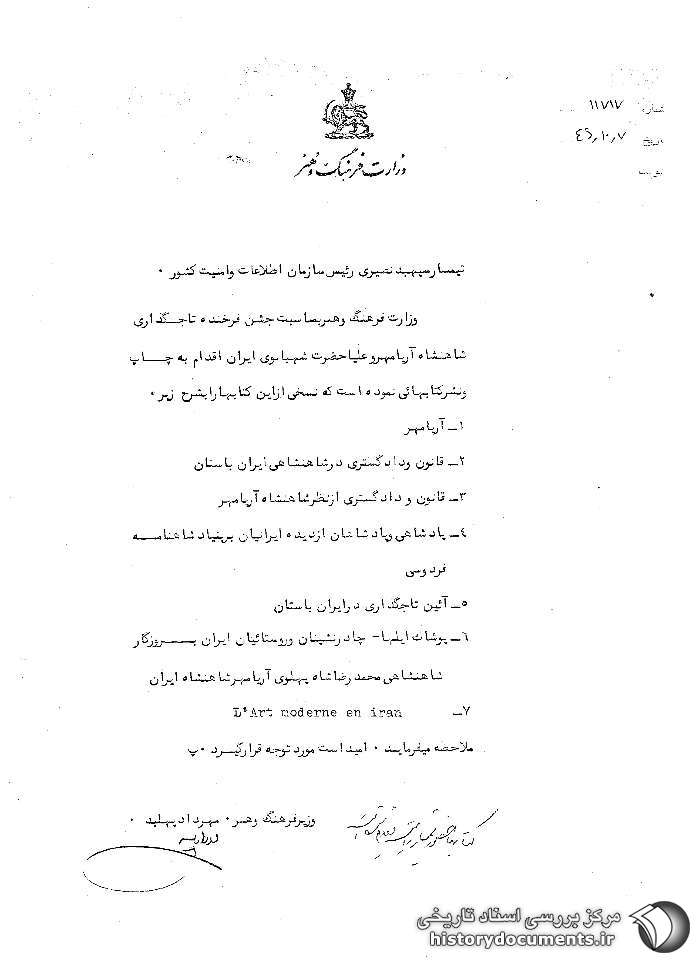 شماره ۱۱۷۱۷
تاریخ ۴۶٫۱۰٫۷
وزارت فرهنگ و هنر
تیمسار سپهبد نصیری رئیس سازمان اطلاعات وامنیت کشور ۰
وزارت فرهنگ وهنر بمناسبت جشن فرخنده تاجگذاری
شاهنشاه آریامهر و علیاحضرت شهبانوی ایران اقدام به چاپ
ونشر کتابهائی نموده است که نسخی از این کتابها را بشرح زیر ۰
۱ـ آریامهر
۲ـ قانون ودادگستری در شاهنشاهی ایران باستان
۳ـ قانون و دادگستری از نظر شاهنشاه آریامهر
۴ـ پادشاهی وپادشاهان از دیده ایرانیان بر بنیاد شاهنامه
فردوسی
۵ـ آئین تاجگذاری در ایران باستان
۶ـ پوشاک ایلها- چادرنشینان وروستائیان ایران بروزگار
شاهنشاهی محمدرضا شاه پهلوی آریامهر شاهنشاه ایران
۷ـ L'Art moderne en iran
ملاحظه میفرمایند ۰ امید است مورد توجه قرار گیرد ۰پ
وزیر فرهنگ وهنر ۰ مهرداد پهلبد ۰
مرکز بررسی اسناد تاریخی
historydocuments.ir